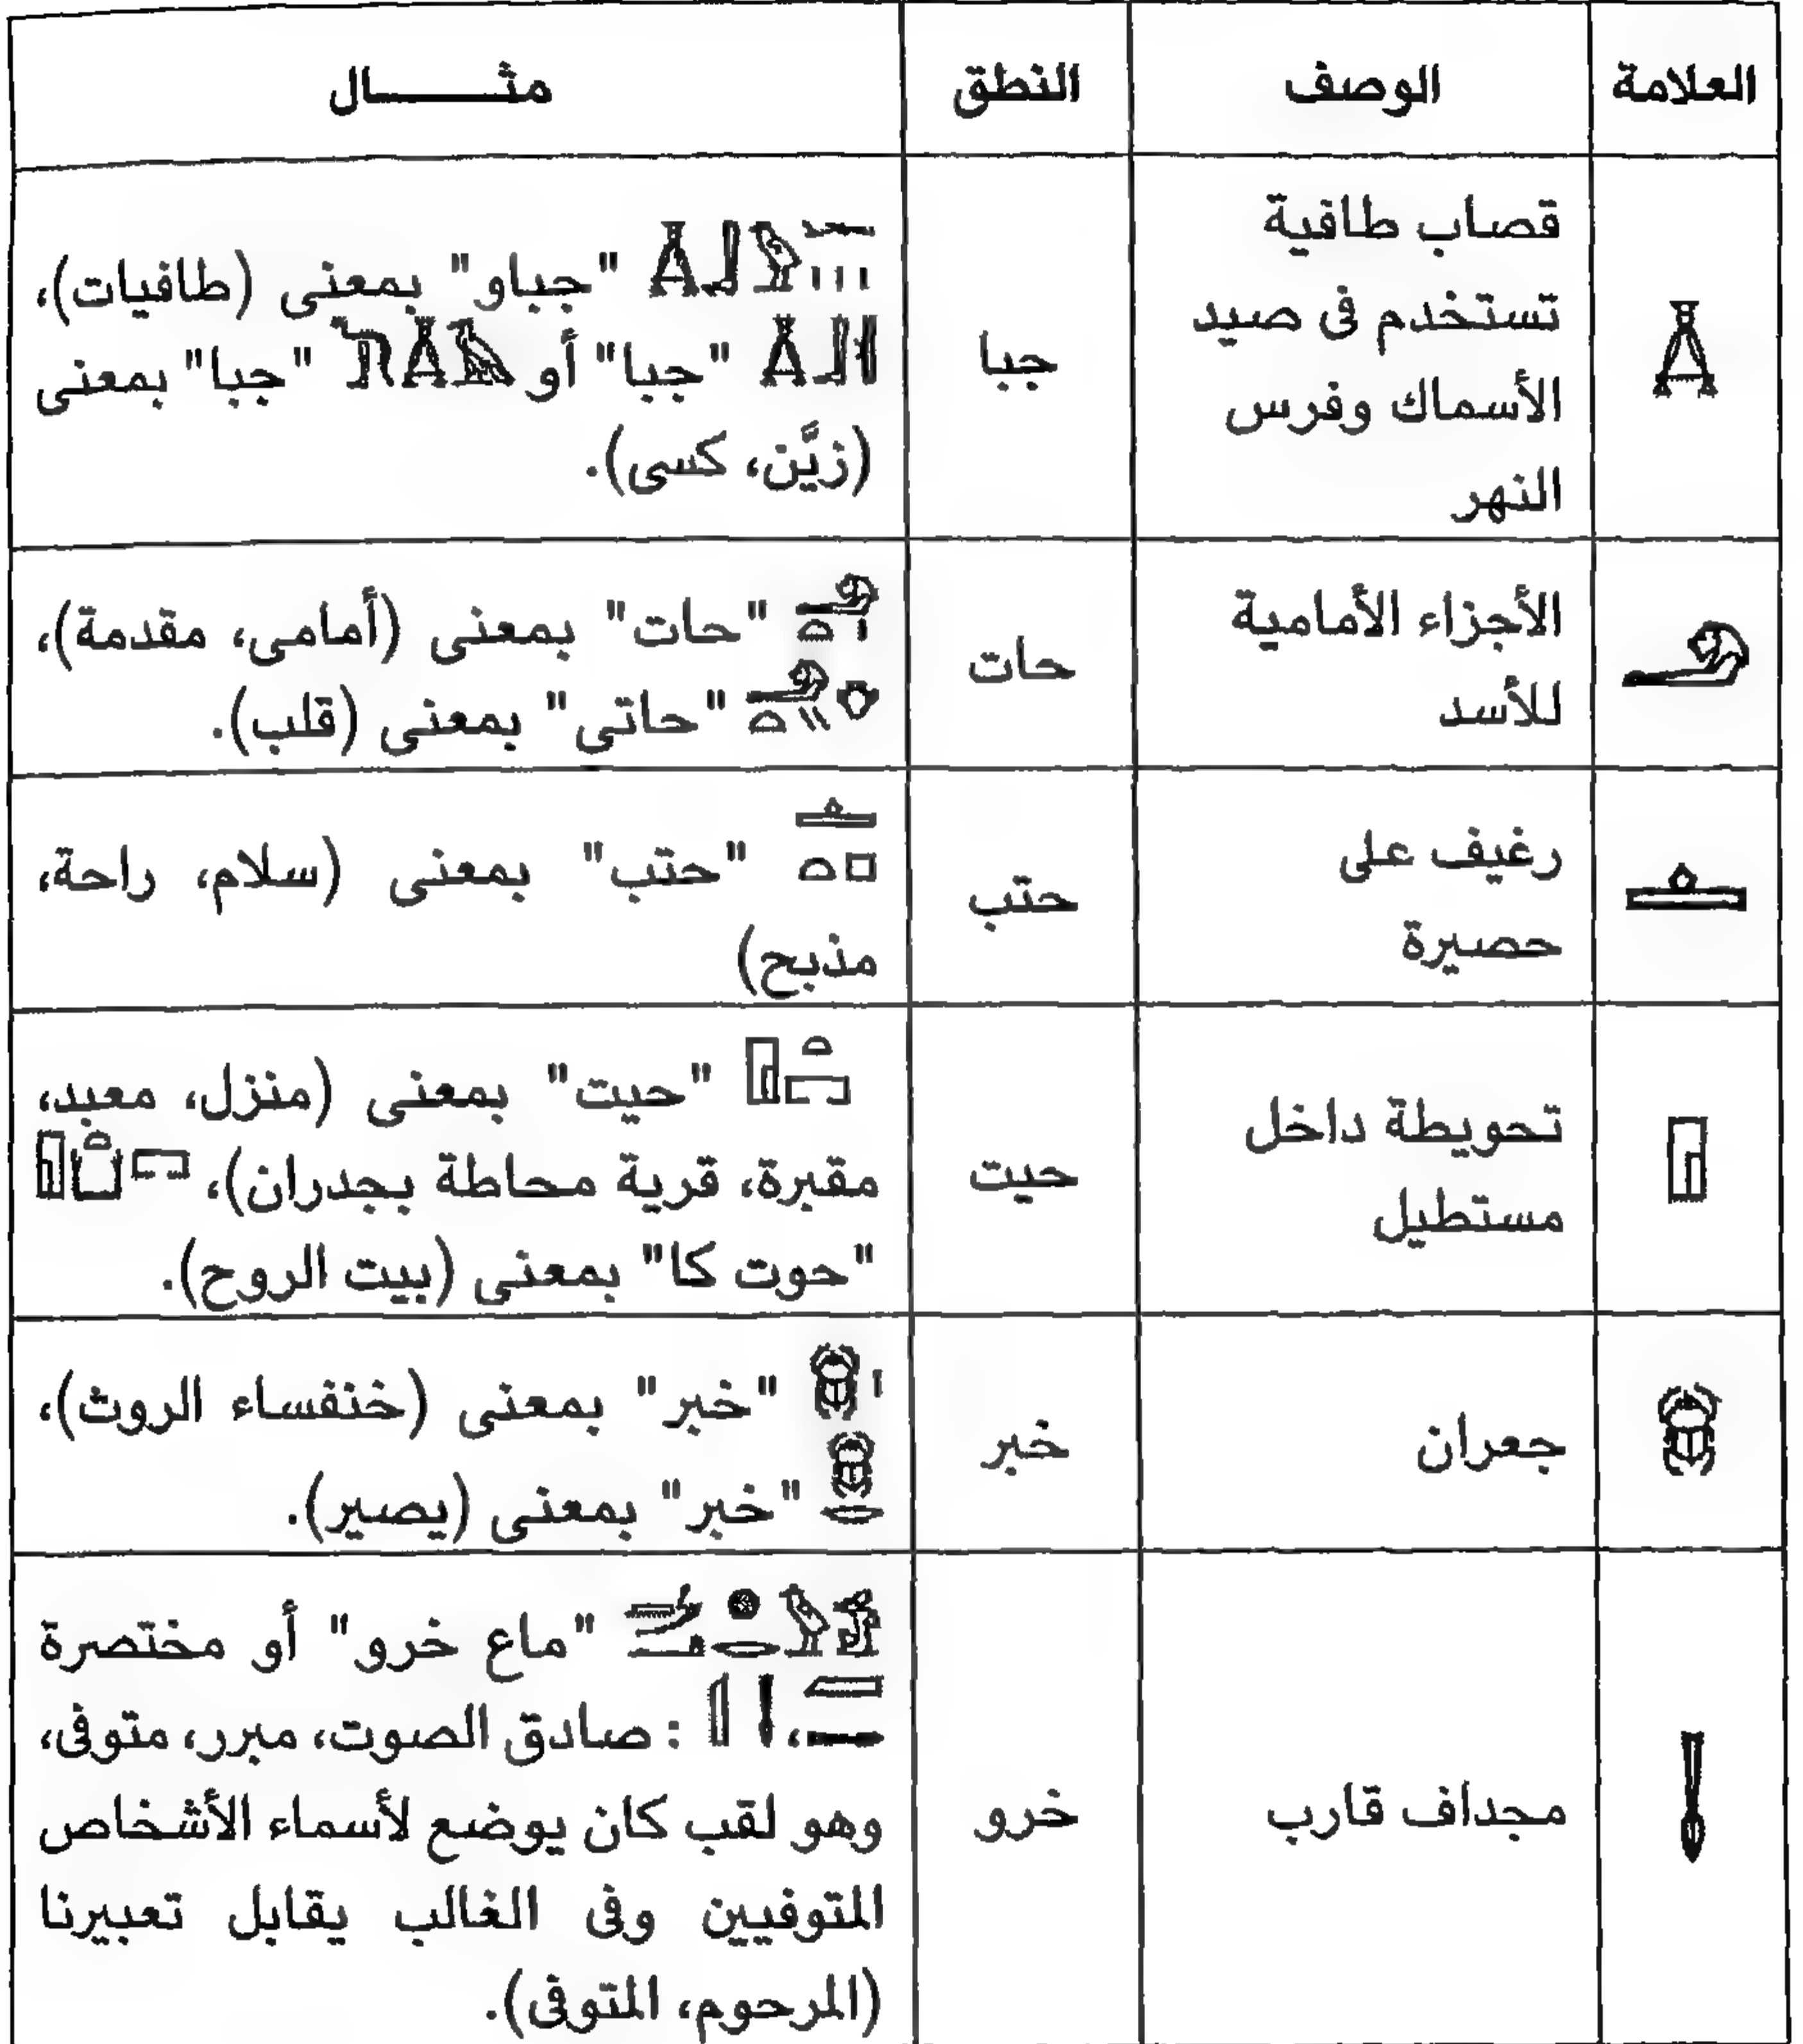 العلامة الوصف النطق مثـــــال
قصاب طافية
تستخدم فى صيد
الأسماك وفرس
النهر
جبا
"جباو" بمعنى (طافيات)،
"جبا" أو "جبا" بمعنى
(زيَّن، كسى).
الأجزاء الأمامية
للأسد
حات
"حات" بمعنى (أمامى، مقدمة)،
"حاتى" بمعنى (قلب).
رغيف على
حصيرة
حتب
"حتب" بمعنى (سلام، راحة،
مذبح)
تحويطة داخل
مستطيل
حيت
"حيت" بمعنى (منزل، معبد،
مقبرة، قرية محاطة بجدران)،
"حوت كا" بمعنى (بيت الروح).
جعران
خبر
"خبر" بمعنى (خنفساء الروث)،
"خبر" بمعنى (يصير).
مجداف قارب
خرو
"ماع خرو" أو مختصرة
، : صادق الصوت، مبرر، متوفى،
وهو لقب كان يوضع لأسماء الأشخاص
المتوفيين وفى الغالب يقابل تعبيرنا
(المرحوم، المتوفى).